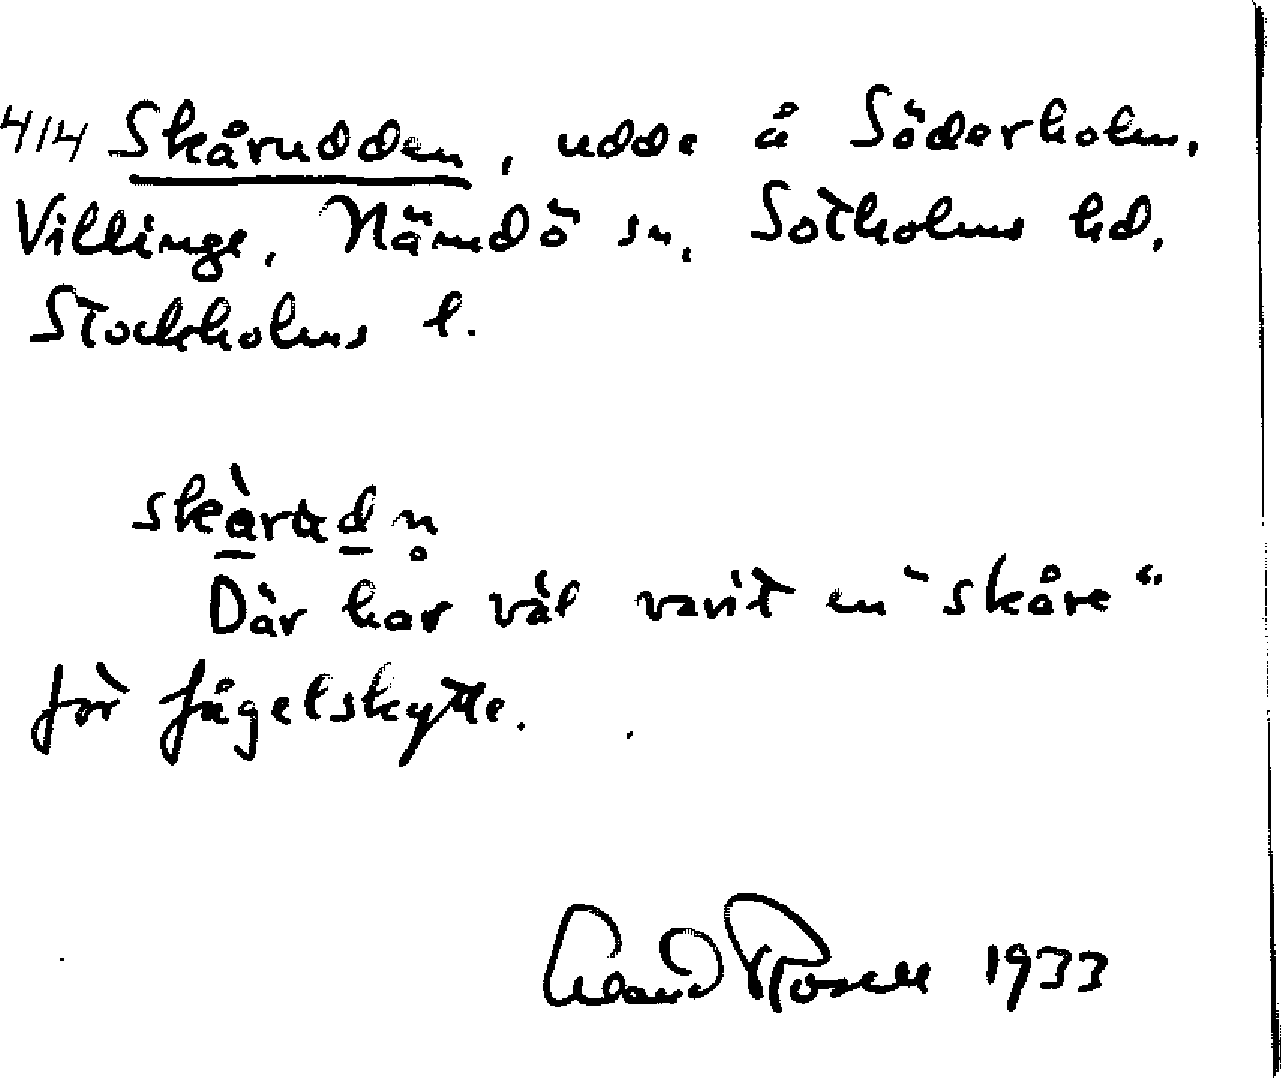 414 Skårudden, udde å Söderholm,
Villinge, Nämdö sn, Sotholms hd,
Stockholms l.
skàrudn̥
Där har väl varit en "skåre"
för fågelskytte.
1933